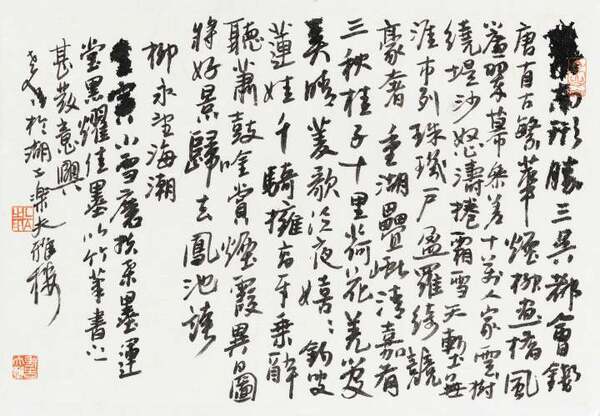 東南形勝三吳都會錢
唐自古繁華煙柳畫橋風
簾翠幕參差十萬人家雲樹
繞堤沙怒濤捲霜雪天塹無
涯市列珠璣戶盈羅綺競
豪奢 重湖疊巘清嘉有
三秋桂子十里荷花羌管
弄晴菱歌泛夜嬉〻釣叟
蓮娃千騎擁高牙乘醉
聽簫鼓吟賞煙霞異日圖
將好景歸去鳳池誇
柳永望海潮
壬寅小雪磨墨運
堂黑耀佳墨以竹筆書之
甚散意興
於湖上樂天雅樓